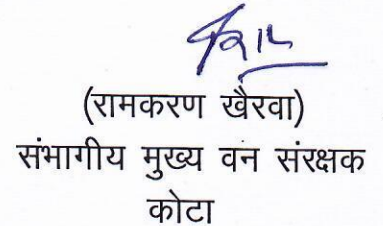 (रामकरण खैरवा)
संभागीय मुख्य वन संरक्षक
कोटा